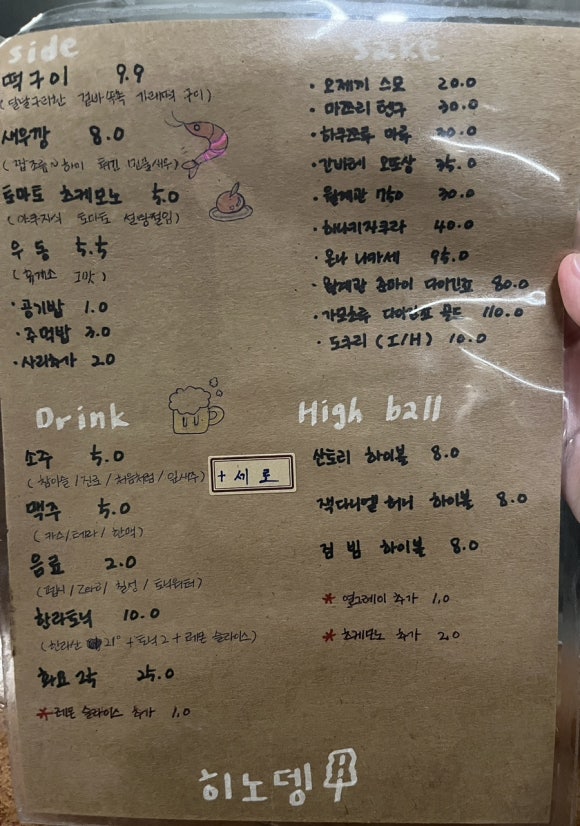 side
떡구이 9.9
새우깡 8.0
토마토 츠케모노 5.0
우동 5.5
· 공기밥 1.0
· 주먹밥 3.0
· 사리추가 2.0
Sake
· 오제끼 스모 20.0
· 마쯔리 텐구 30.0
· 하쿠츠루 마루
· 간바레 오또상 35.0
· 월계관 750 30.0
· 하나키자쿠라 40.0
· 온나 나카세 95.0
· 월계관 쥰마이 다이긴죠 80.0
· 가모츠루 다이긴죠 골드 110.0
· 도쿠리 (I/H) 10.0
Drink
소주 5.0
(참이슬 / 진로 / 처음처럼 / 잎새주)
+ 세로
맥주 5.0
(카스 / 테라 / 한맥)
음료 2.0
(펩시 / Zero / 칠성 / 토닉워터)
한라토닉 10.0
(한라산 21° + 토닉 2 + 레몬 슬라이스)
화요 25.0
* 레몬 슬라이스 추가 1.0
High ball
산토리 하이볼 8.0
잭다니엘 허니 하이볼 8.0
짐 빔 하이볼 8.0
* 얼그레이 추가 1.0
* 츠케모노 추가 2.0
히노뎅